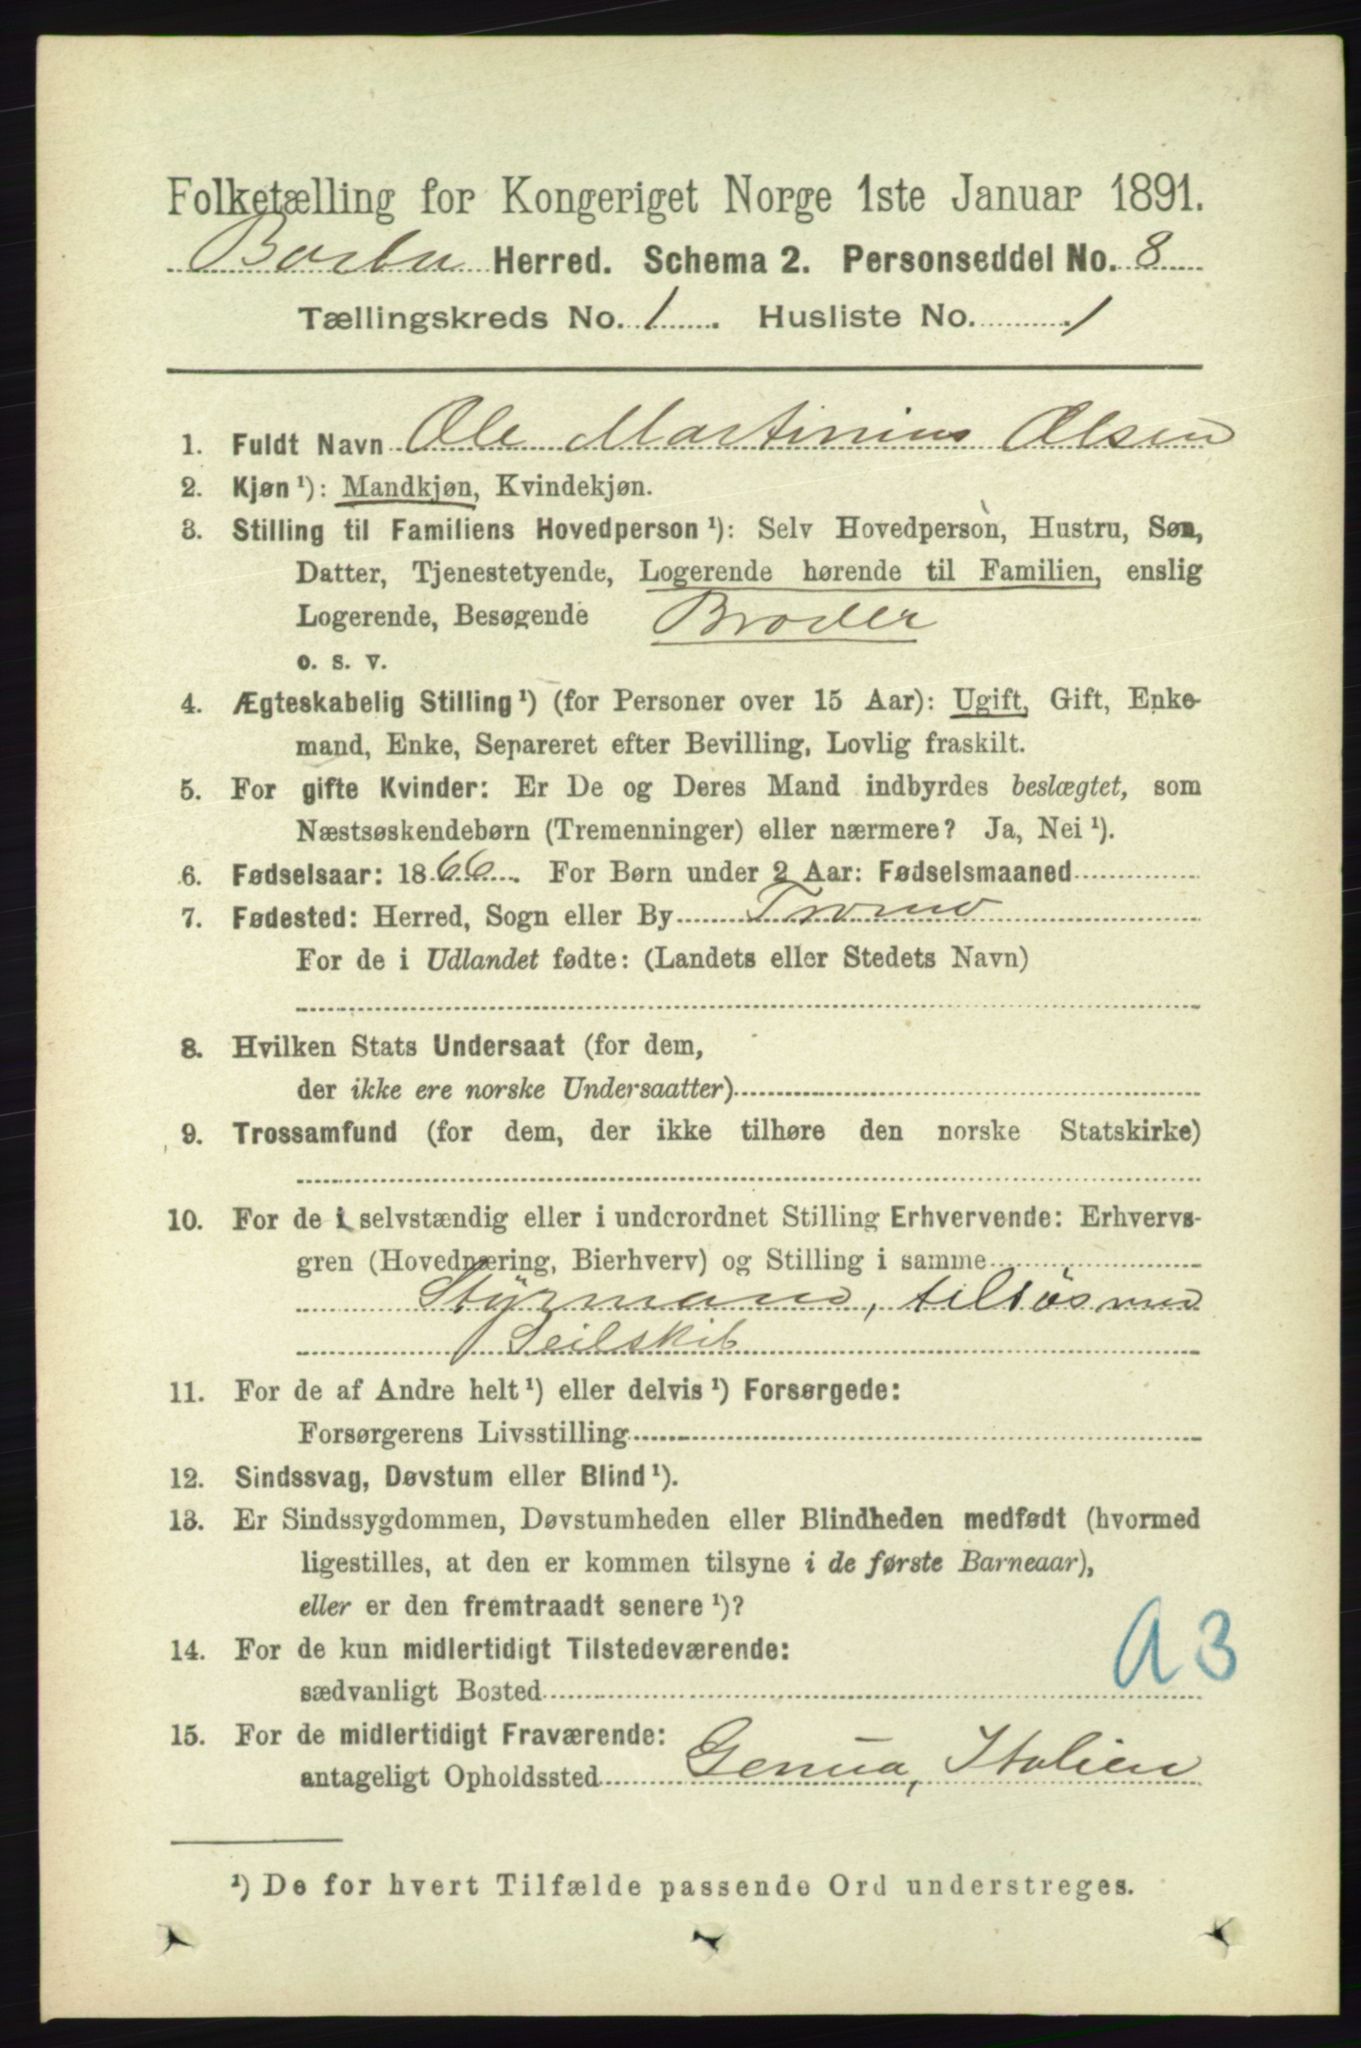 Folketælling for Kongeriget Norge 1ste Januar 1891.
Barbu Herred. Schema 2. Personseddel No. 8
Tællingskreds No. 1. Husliste No. 1
1. Fuldt Navn Ole Martinius Olsen
2. Kjøn ¹): Mandkjøn, Kvindekjøn.
3. Stilling til Familiens Hovedperson ¹): Selv Hovedperson, Hustru, Søn,
Datter, Tjenestetyende, Logerende hørende til Familien, enslig
Logerende, Besøgende Broder
o. s. v.
4. Ægteskabelig Stilling ¹) (for Personer over 15 Aar): Ugift, Gift, Enke-
mand, Enke, Separeret efter Bevilling, Lovlig fraskilt.
5. For gifte Kvinder: Er De og Deres Mand indbyrdes beslægtet, som
Næstsøskendebørn (Tremenninger) eller nærmere? Ja, Nei ¹).
6. Fødselsaar: 1866. For Børn under 2 Aar: Fødselsmaaned
7. Fødested: Herred, Sogn eller By Tromø
For de i Udlandet fødte: (Landets eller Stedets Navn)
8. Hvilken Stats Undersaat (for dem,
der ikke ere norske Undersaatter)
9. Trossamfund (for dem, der ikke tilhøre den norske Statskirke)
10. For de i selvstændig eller i underordnet Stilling Erhvervende: Erhvervs-
gren (Hovednæring, Bierhverv) og Stilling i samme
Styrmand, tilsøs med
Seilskib
11. For de af Andre helt ¹) eller delvis ¹) Forsørgede:
Forsørgerens Livsstilling
12. Sindssvag, Døvstum eller Blind ¹).
13. Er Sindssygdommen, Døvstumheden eller Blindheden medfødt (hvormed
ligestilles, at den er kommen tilsyne i de første Barneaar),
eller er den fremtraadt senere ¹)?
14. For de kun midlertidigt Tilstedeværende:
sædvanligt Bosted
A3
15. For de midlertidigt Fraværende:
antageligt Opholdssted Genua, Italien
¹) De for hvert Tilfælde passende Ord understreges.